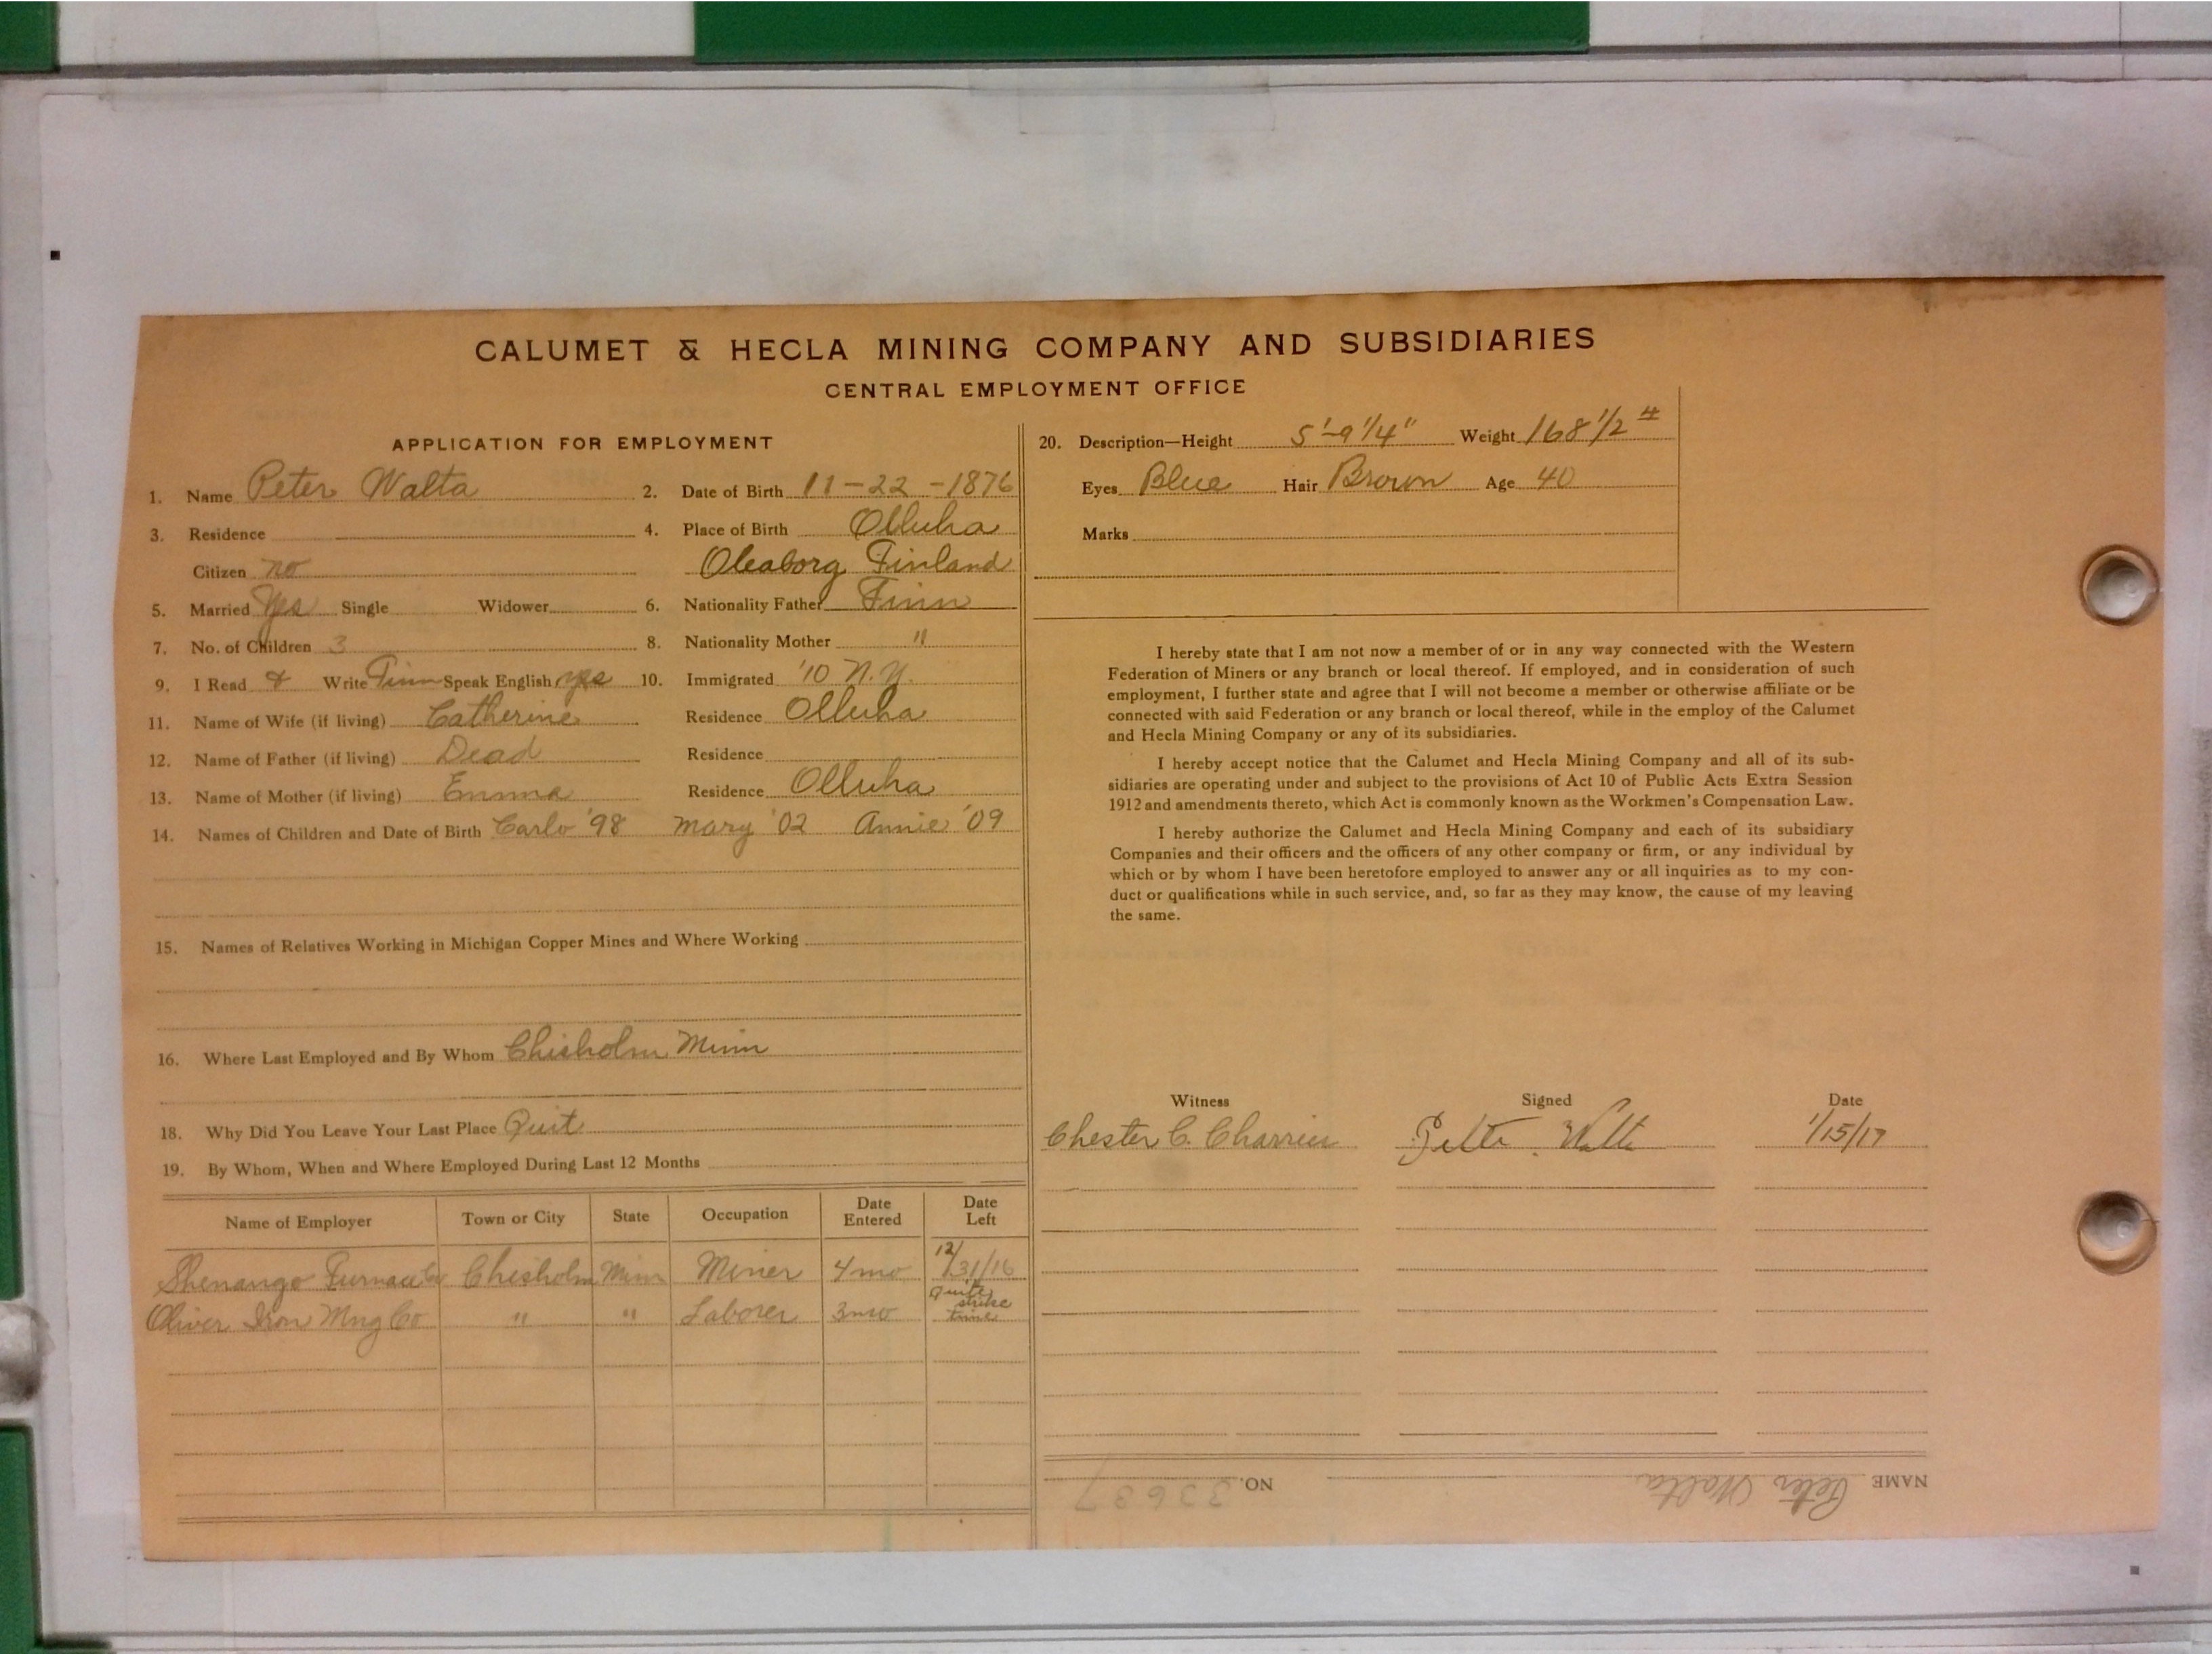 CALUMET & HECLA MINING COMPANY AND SUBSIDIARIES
CENTRAL EMPLOYMENT OFFICE
APPLICATION FOR EMPLOYMENT
1. Name Peter Walta 2. Date of Birth 11-22-1876
3. Residence 4. Place of Birth Olluha
Citizen no Oleaborg Finland
5. Married Yes Single Widower 6. Nationality Father Finn
7. No. of Children 3 8. Nationality Mother "
9. I Read & Write Finn Speak English yes 10. Immigrated '10 N.Y.
11. Name of Wife (if living) Catherine Residence Olluha
12. Name of Father (if living) Dead Residence
13. Name of Mother (if living) Emma Residence Olluha
14. Names of Children and Date of Birth Carlo '98 Mary '02 Annie '09
15. Names of Relatives Working in Michigan Copper Mines and Where Working
16. Where Last Employed and By Whom Chisholm Minn
18. Why Did You Leave Your Last Place Quit
19. By Whom, When and Where Employed During Last 12 Months
Name of Employer Town or City State Occupation Date Entered Date Left
Shenango Furnace Co Chisholm Minn Miner 4mo 12/31/16
Oliver Iron Mng Co " " Laborer 3mo quit strike time
20. Description—Height 5'-9 1/4" Weight 168 1/2 #
Eyes Blue Hair Brown Age 40
Marks
I hereby state that I am not now a member of or in any way connected with the Western
Federation of Miners or any branch or local thereof. If employed, and in consideration of such
employment, I further state and agree that I will not become a member or otherwise affiliate or be
connected with said Federation or any branch or local thereof, while in the employ of the Calumet
and Hecla Mining Company or any of its subsidiaries.
I hereby accept notice that the Calumet and Hecla Mining Company and all of its sub-
sidiaries are operating under and subject to the provisions of Act 10 of Public Acts Extra Session
1912 and amendments thereto, which Act is commonly known as the Workmen's Compensation Law.
I hereby authorize the Calumet and Hecla Mining Company and each of its subsidiary
Companies and their officers and the officers of any other company or firm, or any individual by
which or by whom I have been heretofore employed to answer any or all inquiries as to my con-
duct or qualifications while in such service, and, so far as they may know, the cause of my leaving
the same.
Witness Signed Date
Chester C. Charrier 1/15/17
NAME Peter Walta NO. 33637